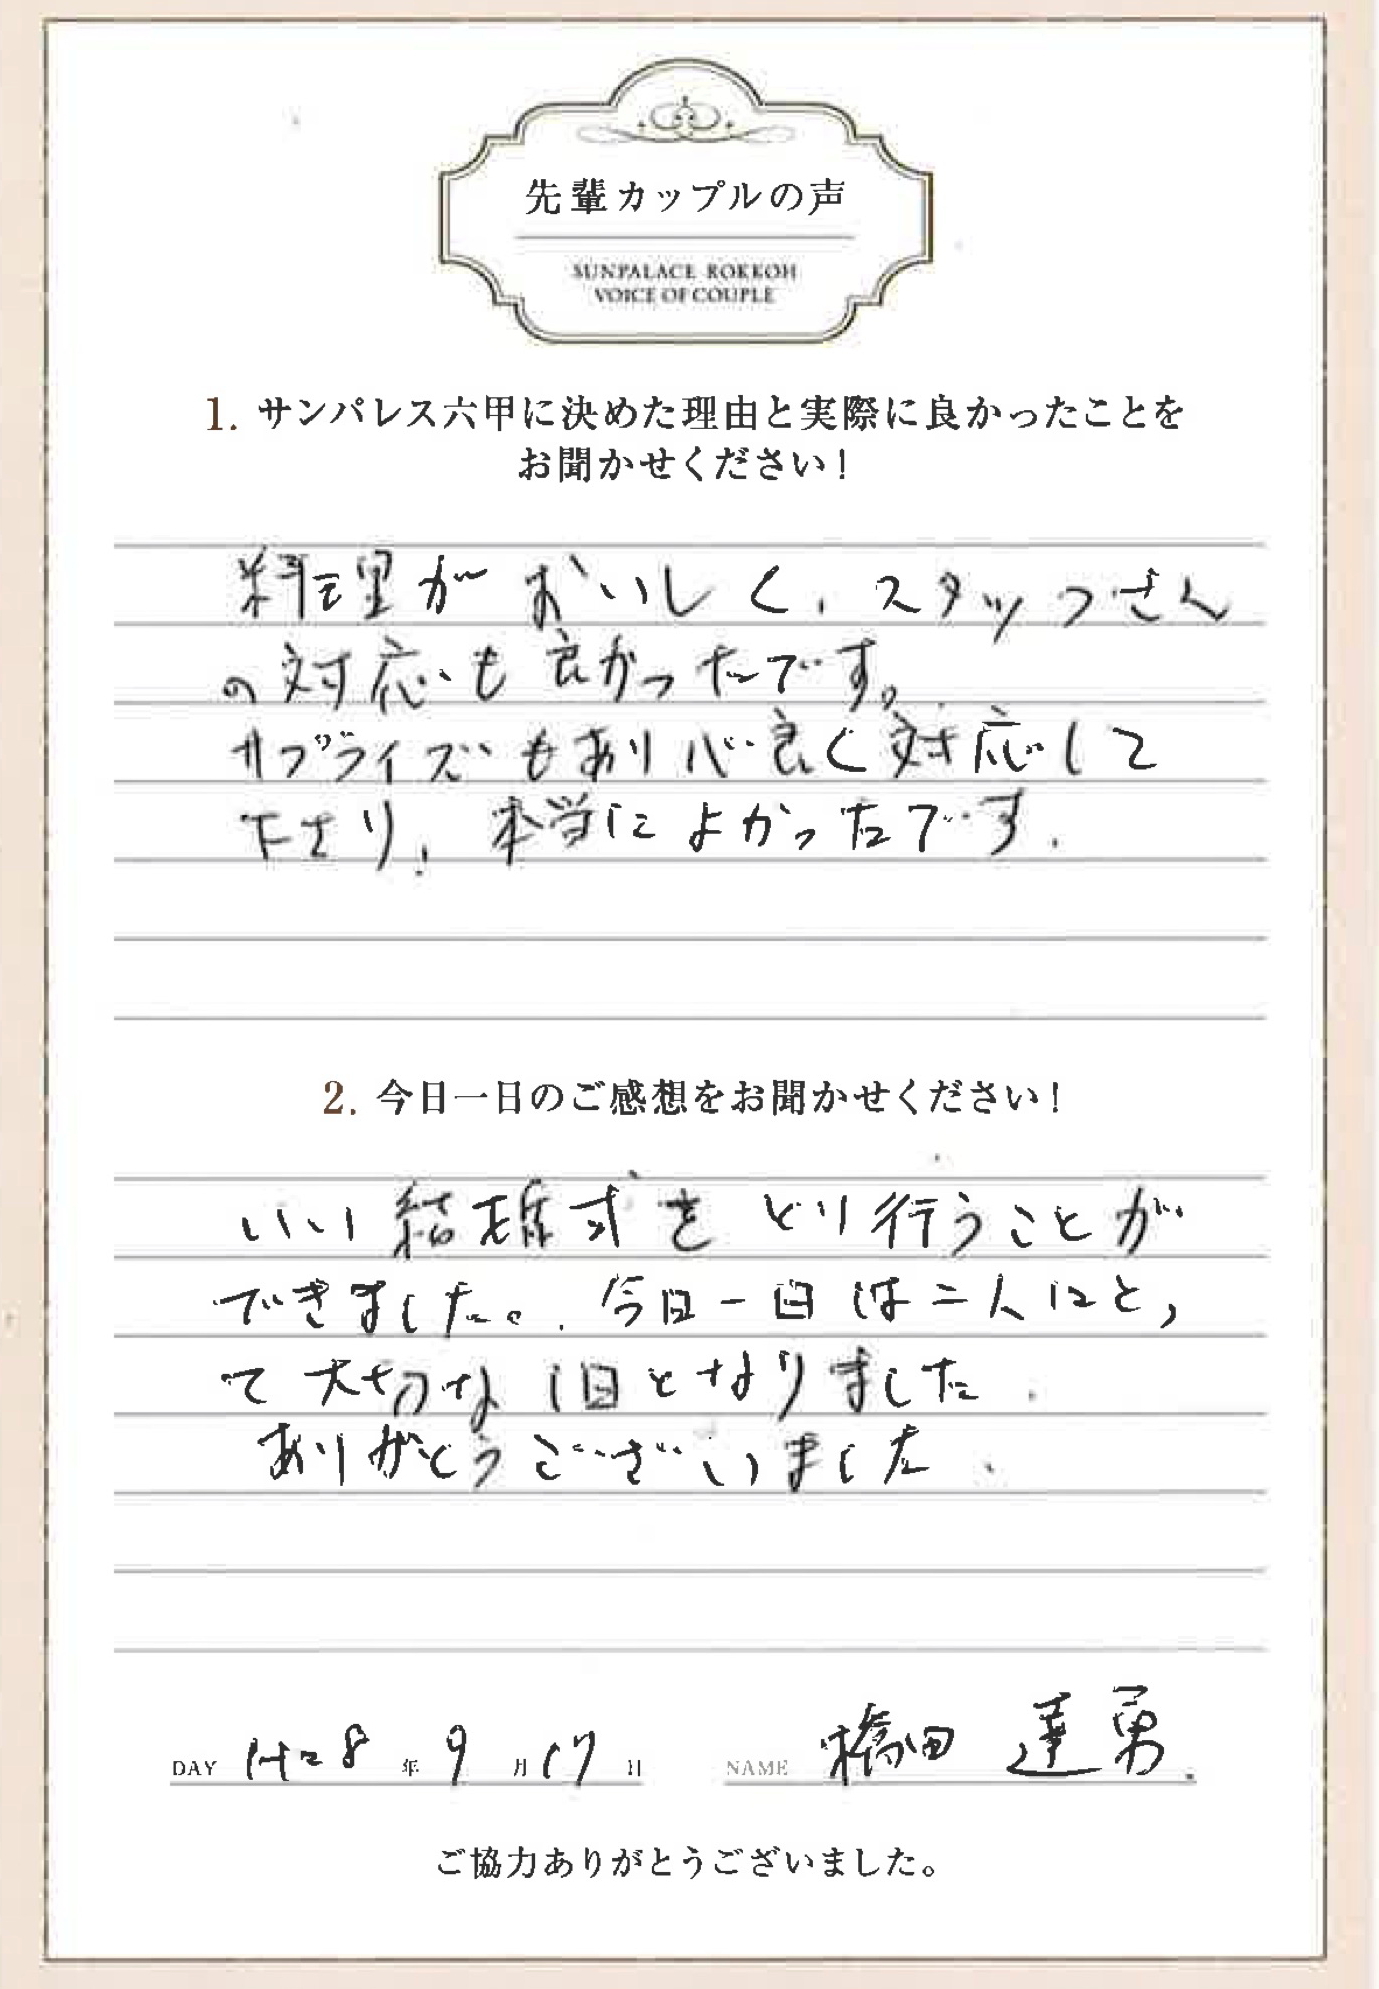 先輩カップルの声
SUNPALACE ROKKOH
VOICE OF COUPLE
1. サンパレス六甲に決めた理由と実際に良かったことを
お聞かせください!
料理がおいしく、スタッフさん
の対応も良かったです。
サプライズもあり心良く対応して
下さり、本当によかったです.
2. 今日一日のご感想をお聞かせください!
いい結婚式をとり行うことが
できました。今日一日は二人にとっ
て大切な1日となりました.
ありがとうございました.
DAY H28年9月17日 NAME 橋田 達勇
ご協力ありがとうございました。